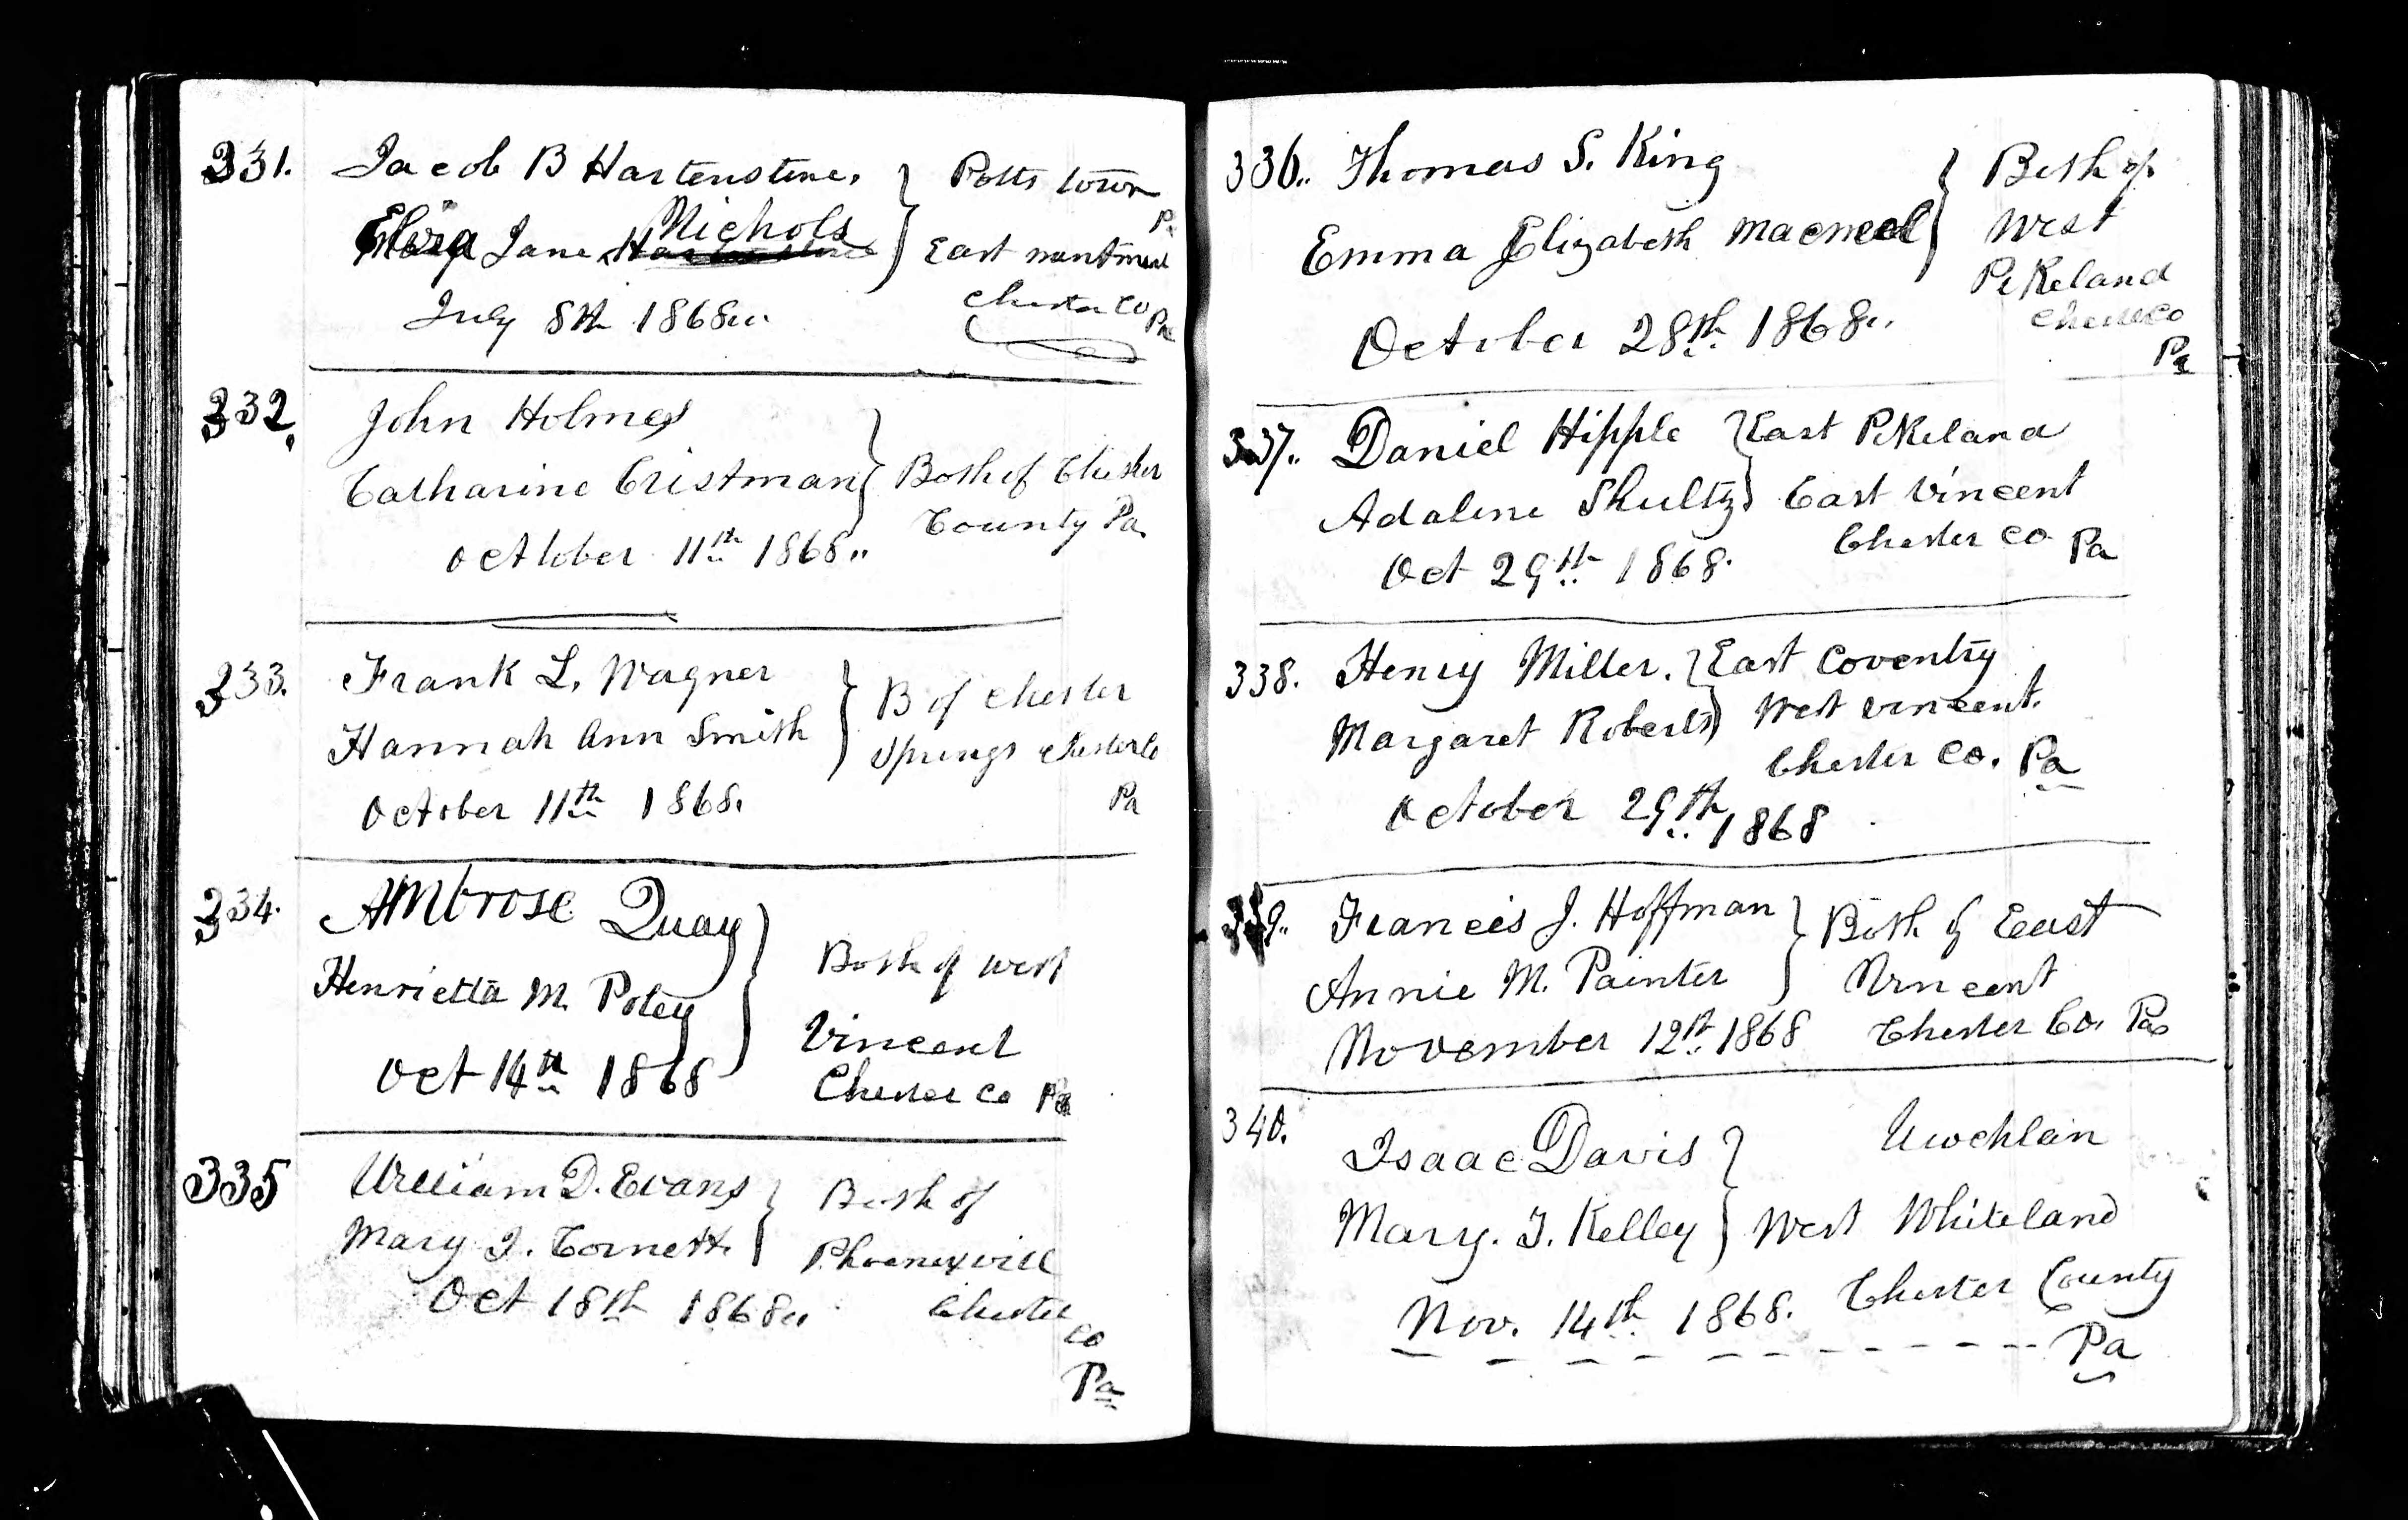 331. Jacob B Hartenstine, } Potts town Pa
Eliza Jane Nichols } East nantmeal
July 8th 1868.. Chester Co Pa
332. John Holmes
Catharine Cristman } Both of Chester
October 11th 1868.. County Pa.
333. Frank L. Wagner } B of Chester
Hannah Ann Smith } Springs Chester Co
October 11th 1868. Pa
334. Ambrose Quay } Both of West
Henrietta M. Poley } Vincent
Oct 14th 1868 Chester Co Pa
335 William D. Evans } Both of
Mary J. Cornett. } Phoenixvill
Oct 18th 1868.. Chester
Co
Pa
336.. Thomas S. King } Both of
Emma Elizabeth Macneal } West
Pikeland
October 28th 1868.. Chester Co
Pa
337.. Daniel Hipple } East Pikeland
Adaline Shultz } East Vincent
Oct 29th 1868. Chester Co Pa
338. Henry Miller. } East Coventry
Margaret Roberts } West Vincent.
Chester Co. Pa
October 29th 1868
339.. Francis J. Hoffman } Both of East
Annie M. Painter } Vincent
November 12th 1868 Chester Co. Pa
340. Isaac Davis } Uwchlan
Mary. J. Kelley } West Whiteland
Nov. 14th 1868. Chester County
Pa